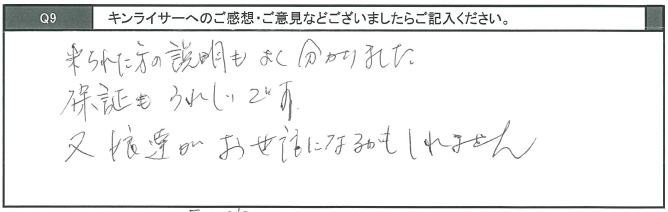 Q9 キンライサーへのご感想・ご意見などございましたらご記入ください。
来られた方の説明もよく分かりました
保証もうれしいです
又娘達がお世話になるかもしれません